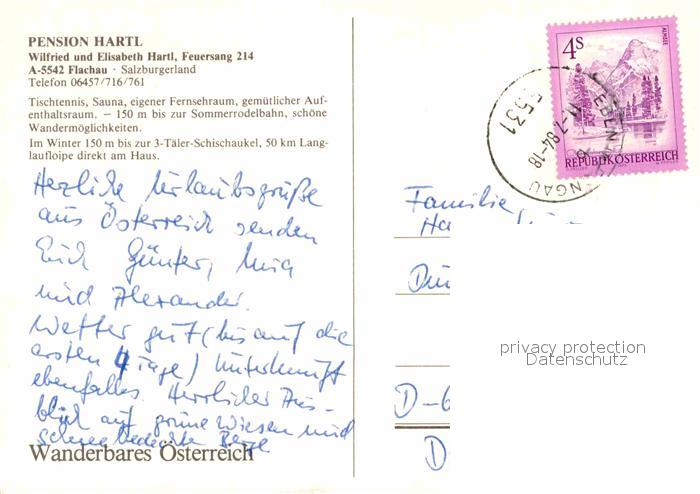 PENSION HARTL
Wilfried und Elisabeth Hartl, Feuersang 214
A-5542 Flachau · Salzburgerland
Telefon 06457/716/761
Tischtennis, Sauna, eigener Fernsehraum, gemütlicher Auf-
enthaltsraum. – 150 m bis zur Sommerrodelbahn, schöne
Wandermöglichkeiten.
Im Winter 150 m bis zur 3-Täler-Schischaukel, 50 km Lang-
laufloipe direkt am Haus.
Herzliche Urlaubsgrüße
aus Österreich senden
Euch Günter,
und Alexander.
Wetter gut (bis auf die
ersten 4 Tage) Unterkunft
ebenfalls. Herrlicher Aus-
blick auf grüne Wiesen und
schneebedeckte Berge
Wanderbares Österreich
4S
ALMSEE
REPUBLIK ÖSTERREICH
5531 EBEN
11-7.84-18
NGAU
Familie
Ha
D-6
D
privacy protection
Datenschutz